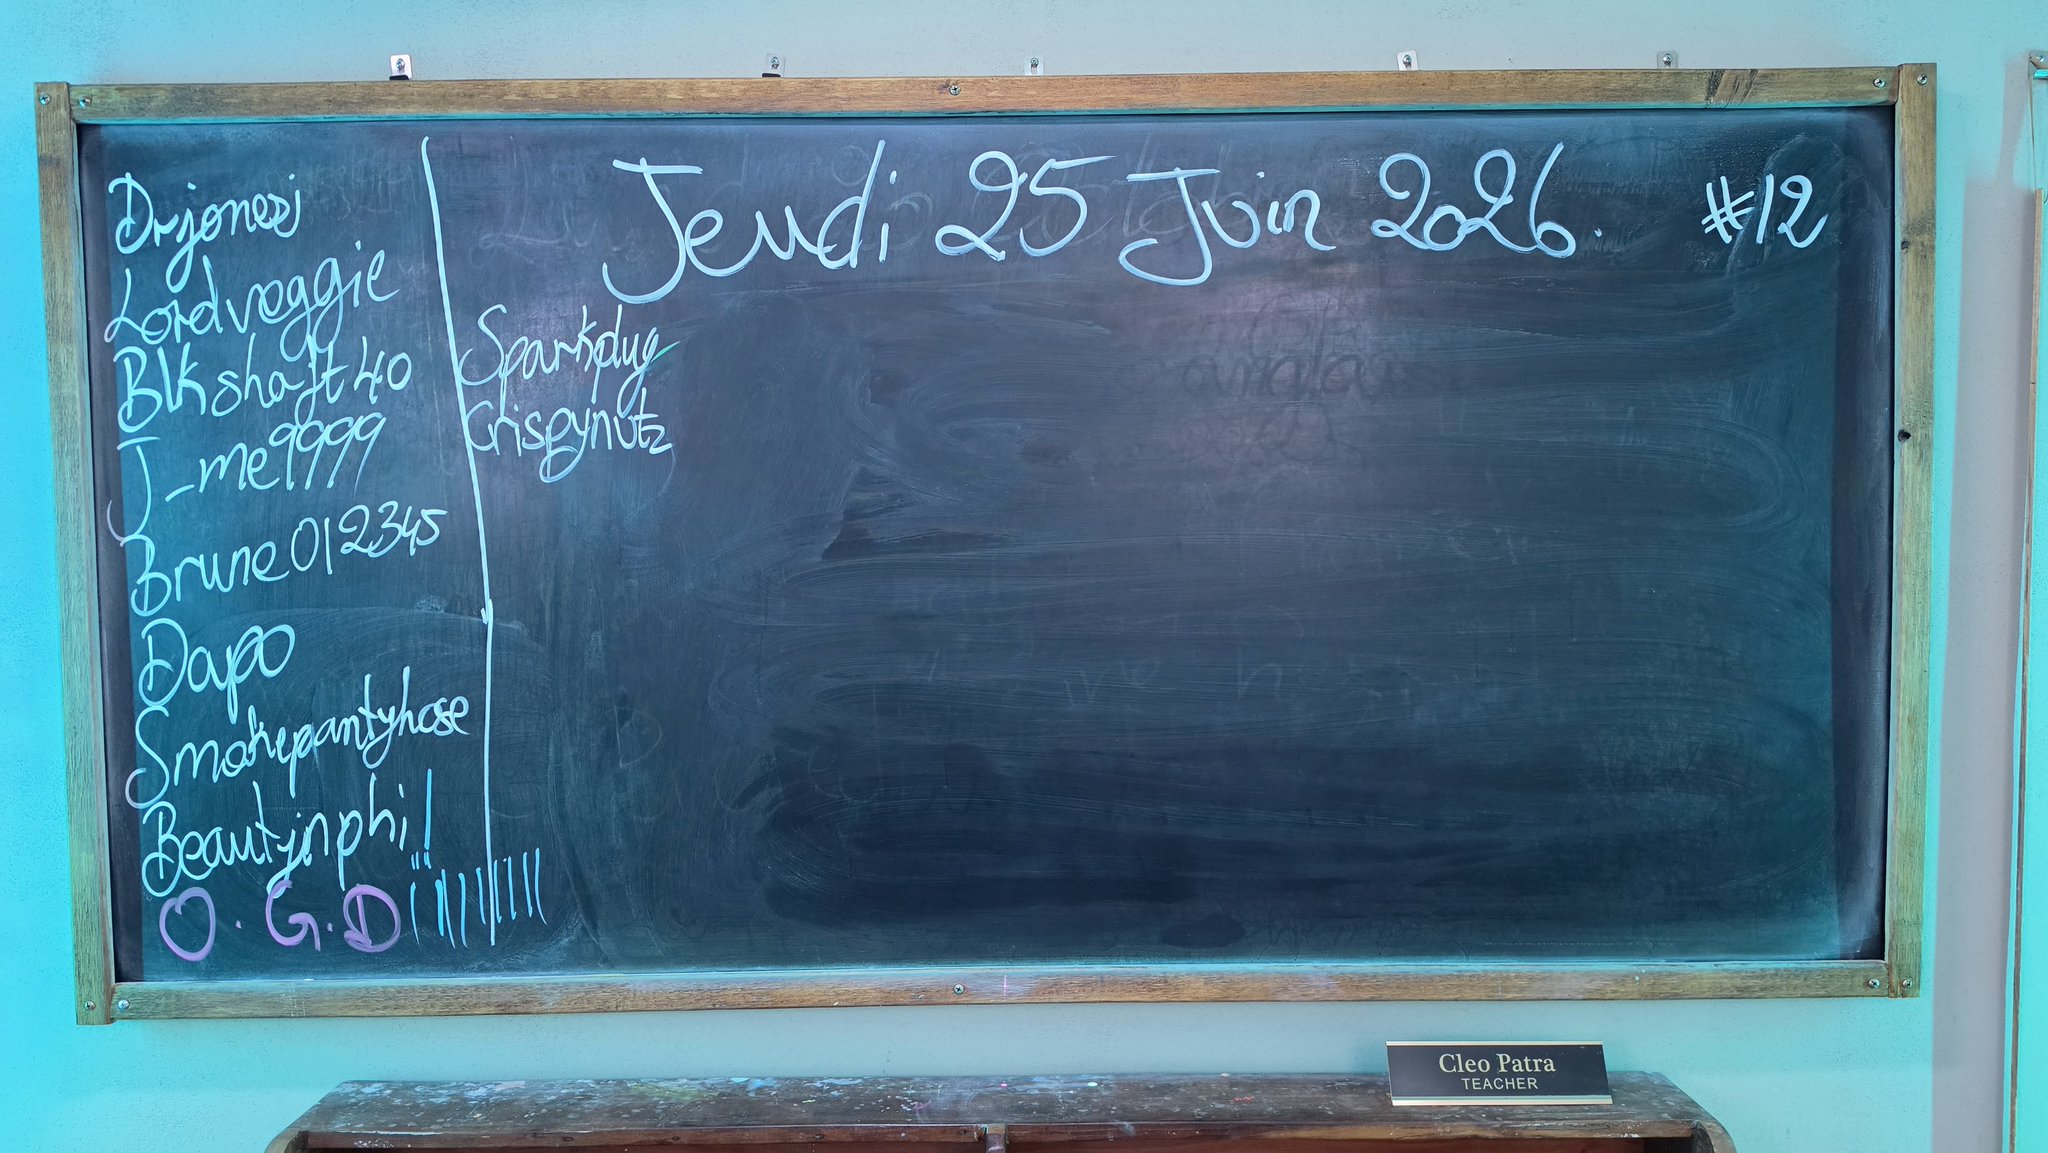 Jeudi 25 Juin 2026. #12
Drjonesj
Lordveggie
Blkshaft40
J_me9999
Brune012345
Dapo
Smokepantyhose
Beautyinphi!
O.G.D
Sparkplug
Crispynutz
Cleo Patra
TEACHER